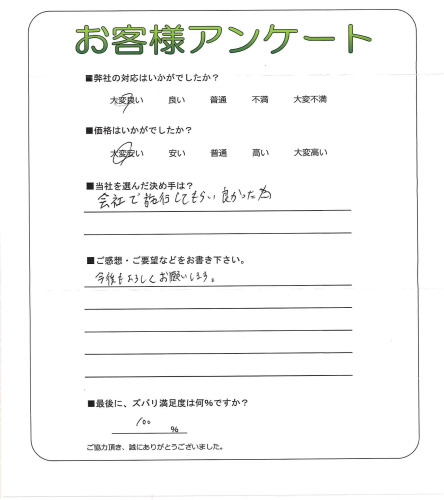 お客様アンケート
■弊社の対応はいかがでしたか？
大変良い 良い 普通 不満 大変不満
■価格はいかがでしたか？
大変安い 安い 普通 高い 大変高い
■当社を選んだ決め手は？
会社で していてもらい良かった為
■ご感想・ご要望などをお書き下さい。
今後もよろしくお願いします。
■最後に、ズバリ満足度は何％ですか？
100 ％
ご協力頂き、誠にありがとうございました。